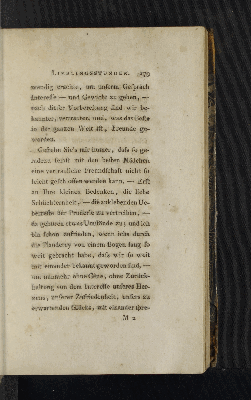 LIEBLINGSSTUNDEN. 179
wendig erachte, um unserm Gespräch
Interesse — und Gewicht zu geben, —
nach dieser Vorbereitung sind wir be-
kannter, vertrauter, und, was das
in der ganzen Welt ist, Freunde ge-
worden.
Gestehn Sie's mir immer, daß so ge-
radezu selbst mit den besten Mädchen
eine vertrauliche Freundschaft nicht so
leicht geschlossen werden kann. — Erst
an Ihre kleinen Bedenken, die liebe
Schüchternheit, — die anklebenden Ue-
berreste der Pruderie zu vertreiben, —
da gehören etwas Umstände zu; und ich
bin schon zufrieden, wenn ichs durch
die Plauderey von einem Bogen lang so
weit gebracht habe, daß wir so weit
mit einander bekannt geworden sind, —
um nunmehr ohne Gêne, ohne Zurück-
haltung von dem Interesse unsres Her-
zens, unsrer Zufriedenheit, unsers zu
erwartenden Glücks, mit einander spre-
M 2